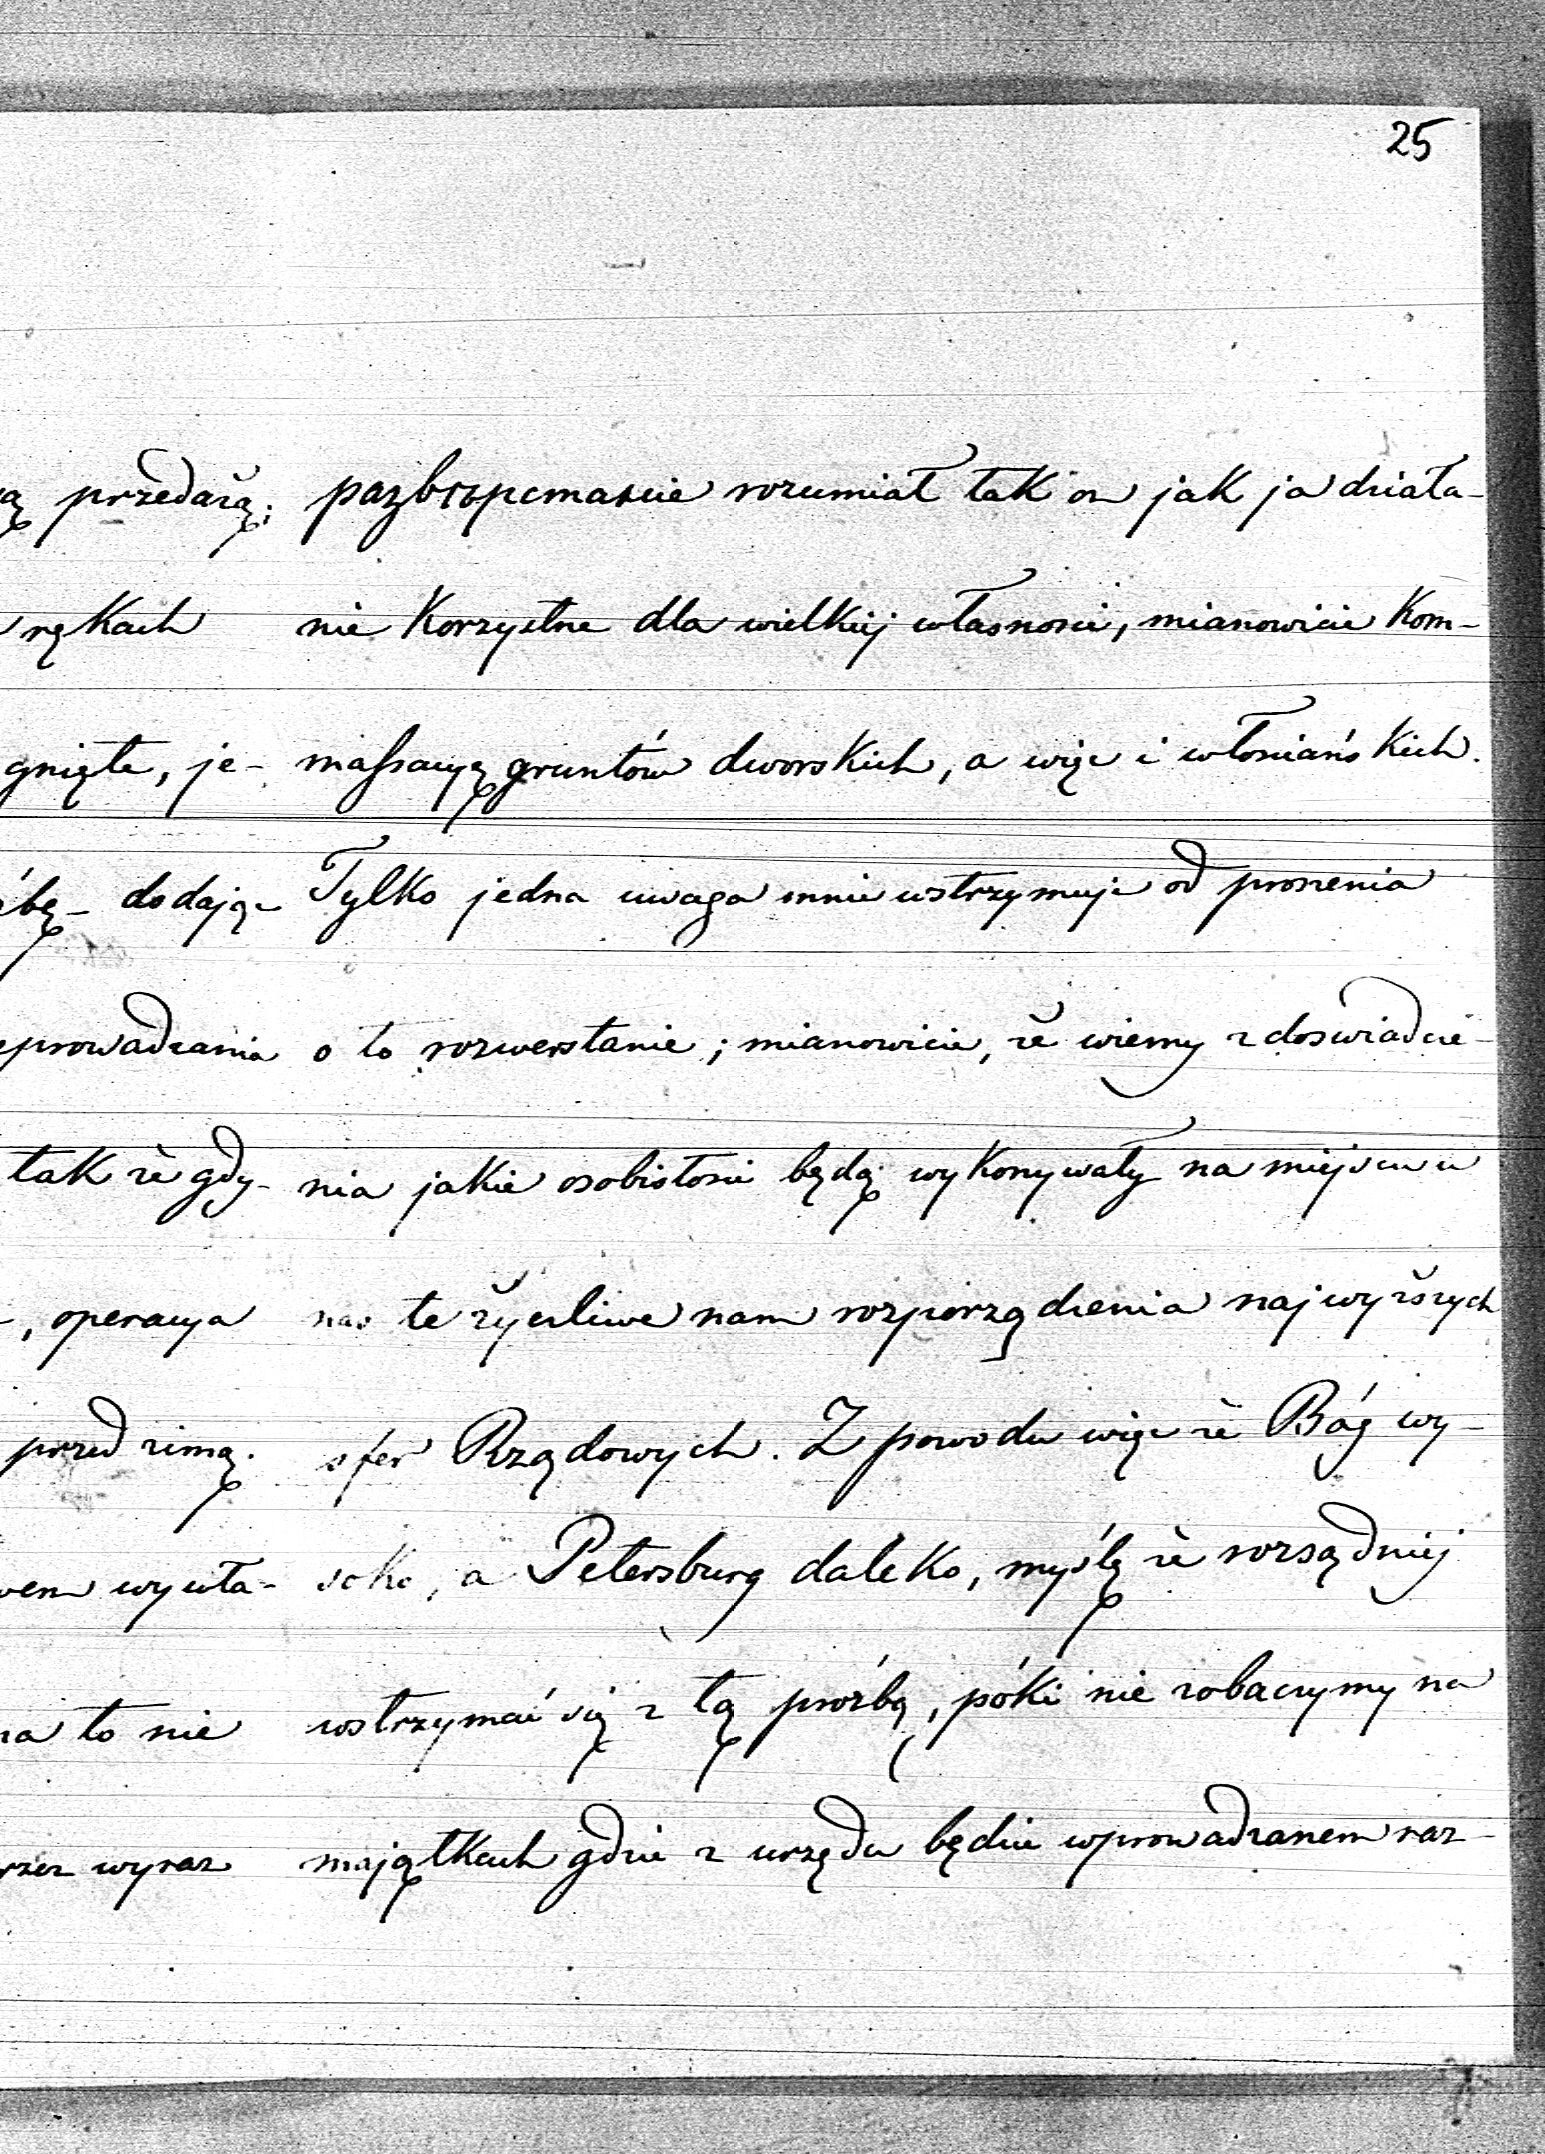 25
ą przedażą;
rękach
gnięte, je-
bę - dodając
prowadzania
tak że gdy-
-, operacya
przed zimą.
wem wywła-
na to nie
rzez wyraz
разверстаcie rozumiał tak on jak ja działa-
nie korzystne dla wielkiéj własności, mianowicie kom-
massacyę gruntów dworskich, a więc i włościańskich.
Tylko jedna uwaga mnie wstrzymuje od proszenia
o to rozwerstanie; mianowicie, że wiemy z doświadcze-
nia jakie osobistości będą wykonywały na miejscu u
nas te życzliwe nam rozporządzenia najwyższych
sfer Rządowych. Z powodu więc że Bóg wy-
soko, a Petersburg daleko, myślę że rozsądniej
wstrzymać się z tą prośbą, póki nie zobaczymy na
majątkach gdzie z urzędu będzie wprowadzanem raz-